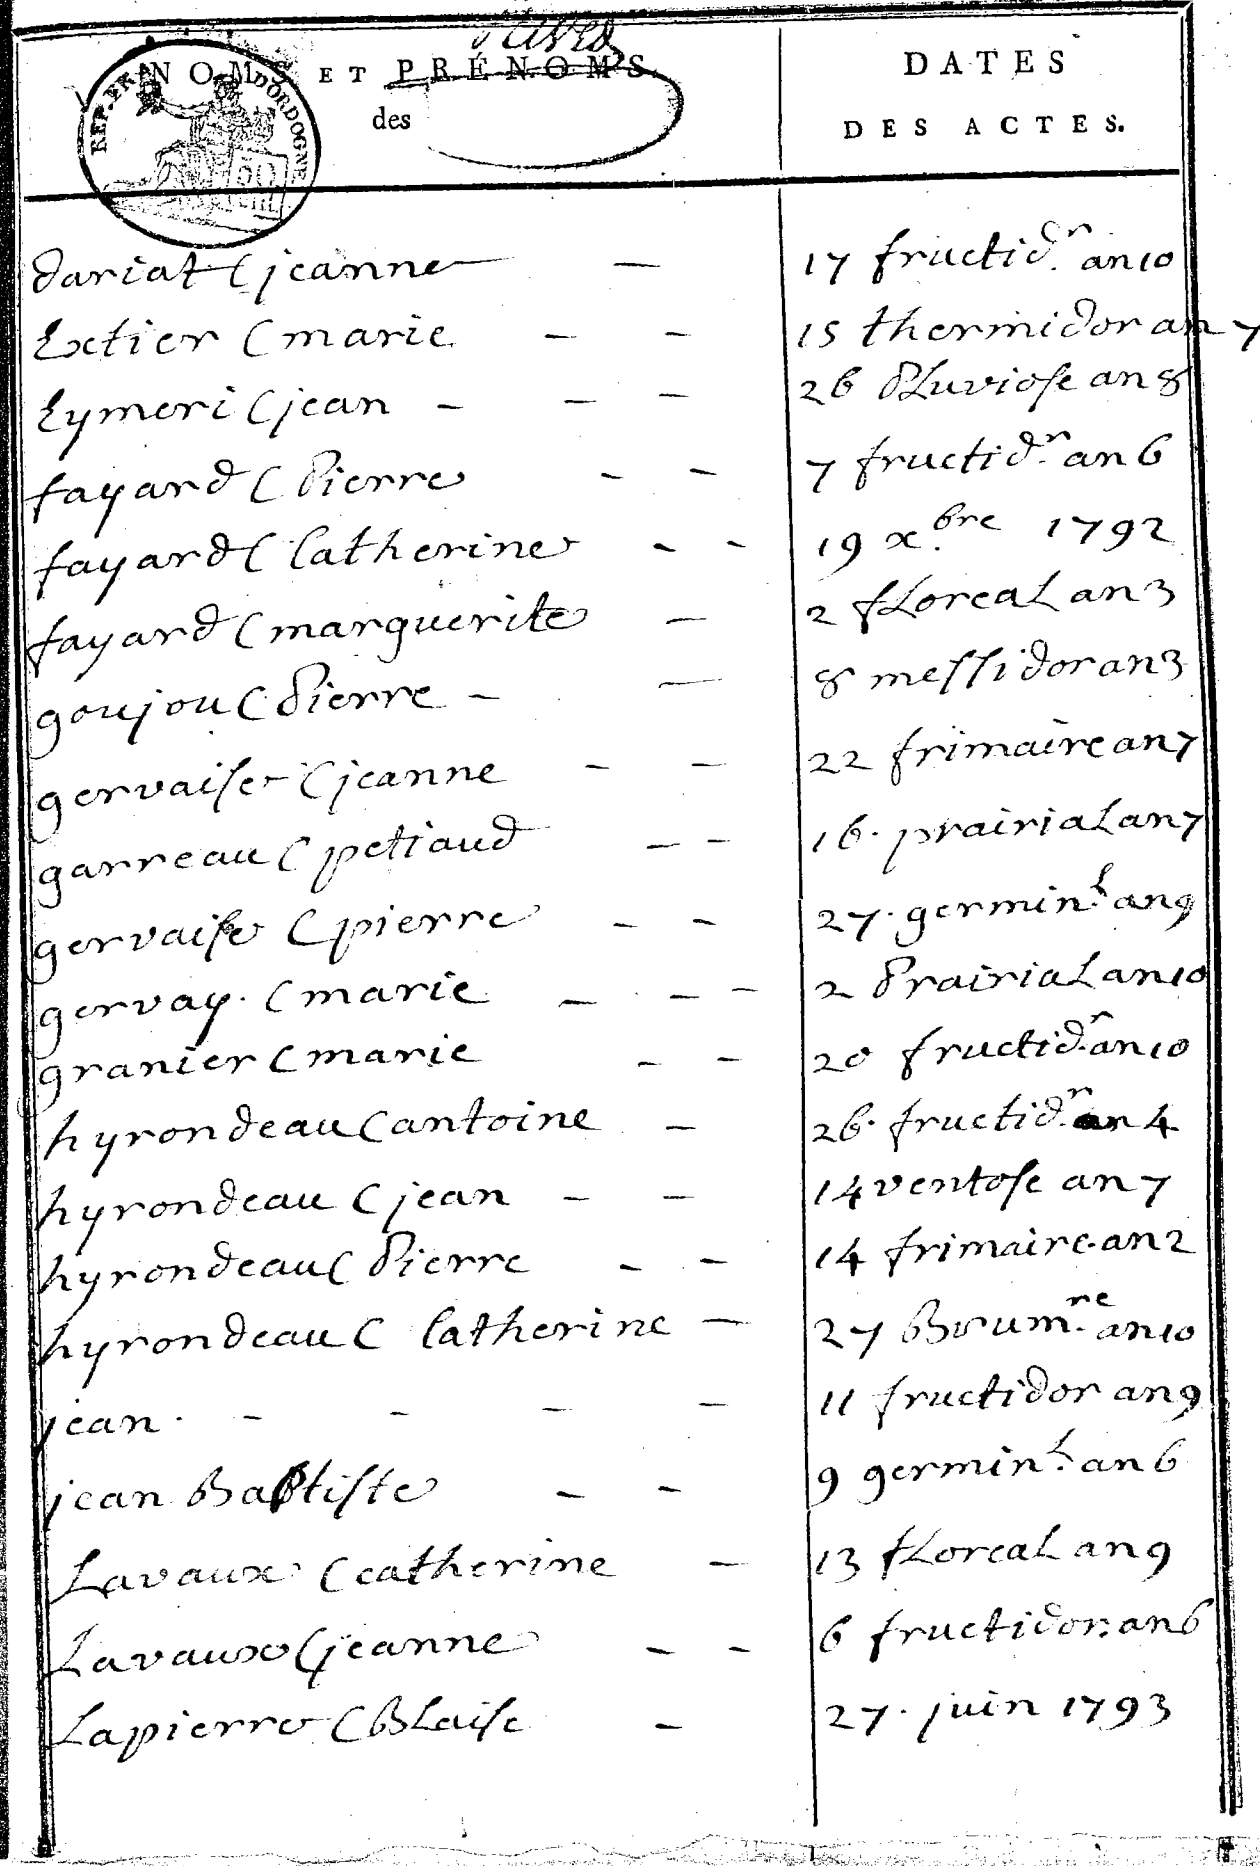 NOMS ET PRÉNOMS
des
DATES
DES ACTES.
REP. FRA. DORDOGNE
dariat (jeanne — 17 fructid.r an 10
Extier (marie — — 15 thermidor an 7
Eymeri (jean — — — 26 Pluviose an 8
fayard (Pierre — — 7 fructid.r an 6
fayard (Catherine — — 19 x.bre 1792
fayard (marguerite — 2 floreal an 3
goujou (Pierre — — 8 messidor an 3
gervaise (jeanne — — 22 frimaire an 7
garreau (petiaud — — 16. prairial an 7
gervaise (pierre — — 27. germin.l an 9
gervay. (marie — — — 2 Prairial an 10
granier (marie — — 20 fructid.r an 10
hyrondeau (antoine — 26. fructid.r an 4
hyrondeau (jean — — 14 ventose an 7
hyrondeau (Pierre — — 14 frimaire. an 2
hyrondeau (Catherine — 27 Brum.re an 10
jean. — — — — 11 fructidor an 9
jean Baptiste — — 9 germin.l an 6
Lavaux (catherine — 13 floreal an 9
Lavaux (jeanne — — 6 fructidor. an 6
Lapierre (Blaise — 27. juin 1793